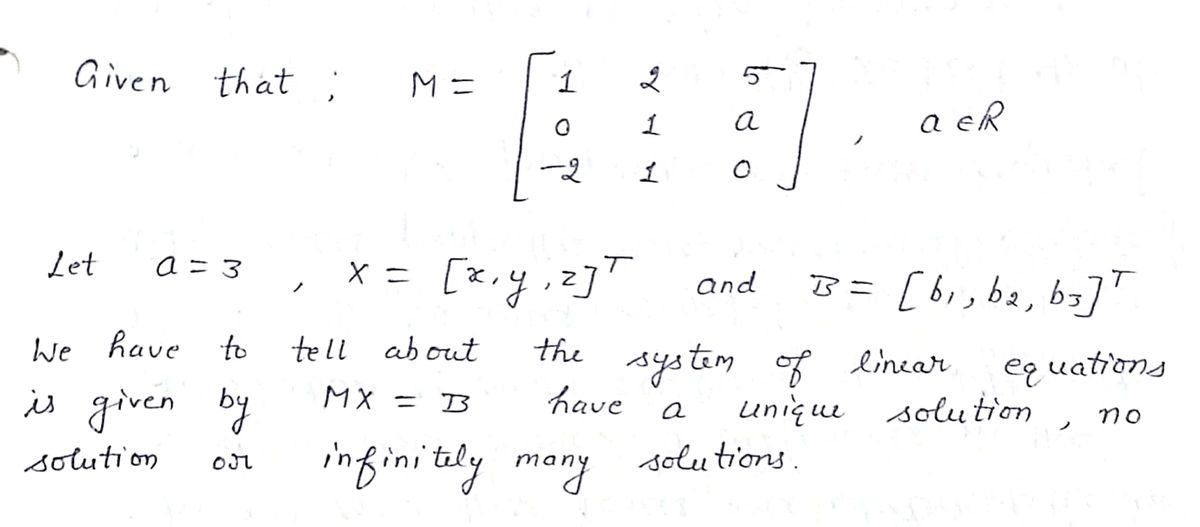 Given that ; M = [ 1 2 5
0 1 a
-2 1 0 ] , a ∈ R
Let a = 3 , X = [x, y, z]ᵀ and B = [b₁, b₂, b₃]ᵀ
We have to tell about the system of linear equations
is given by MX = B have a unique solution , no
solution or infinitely many solutions.